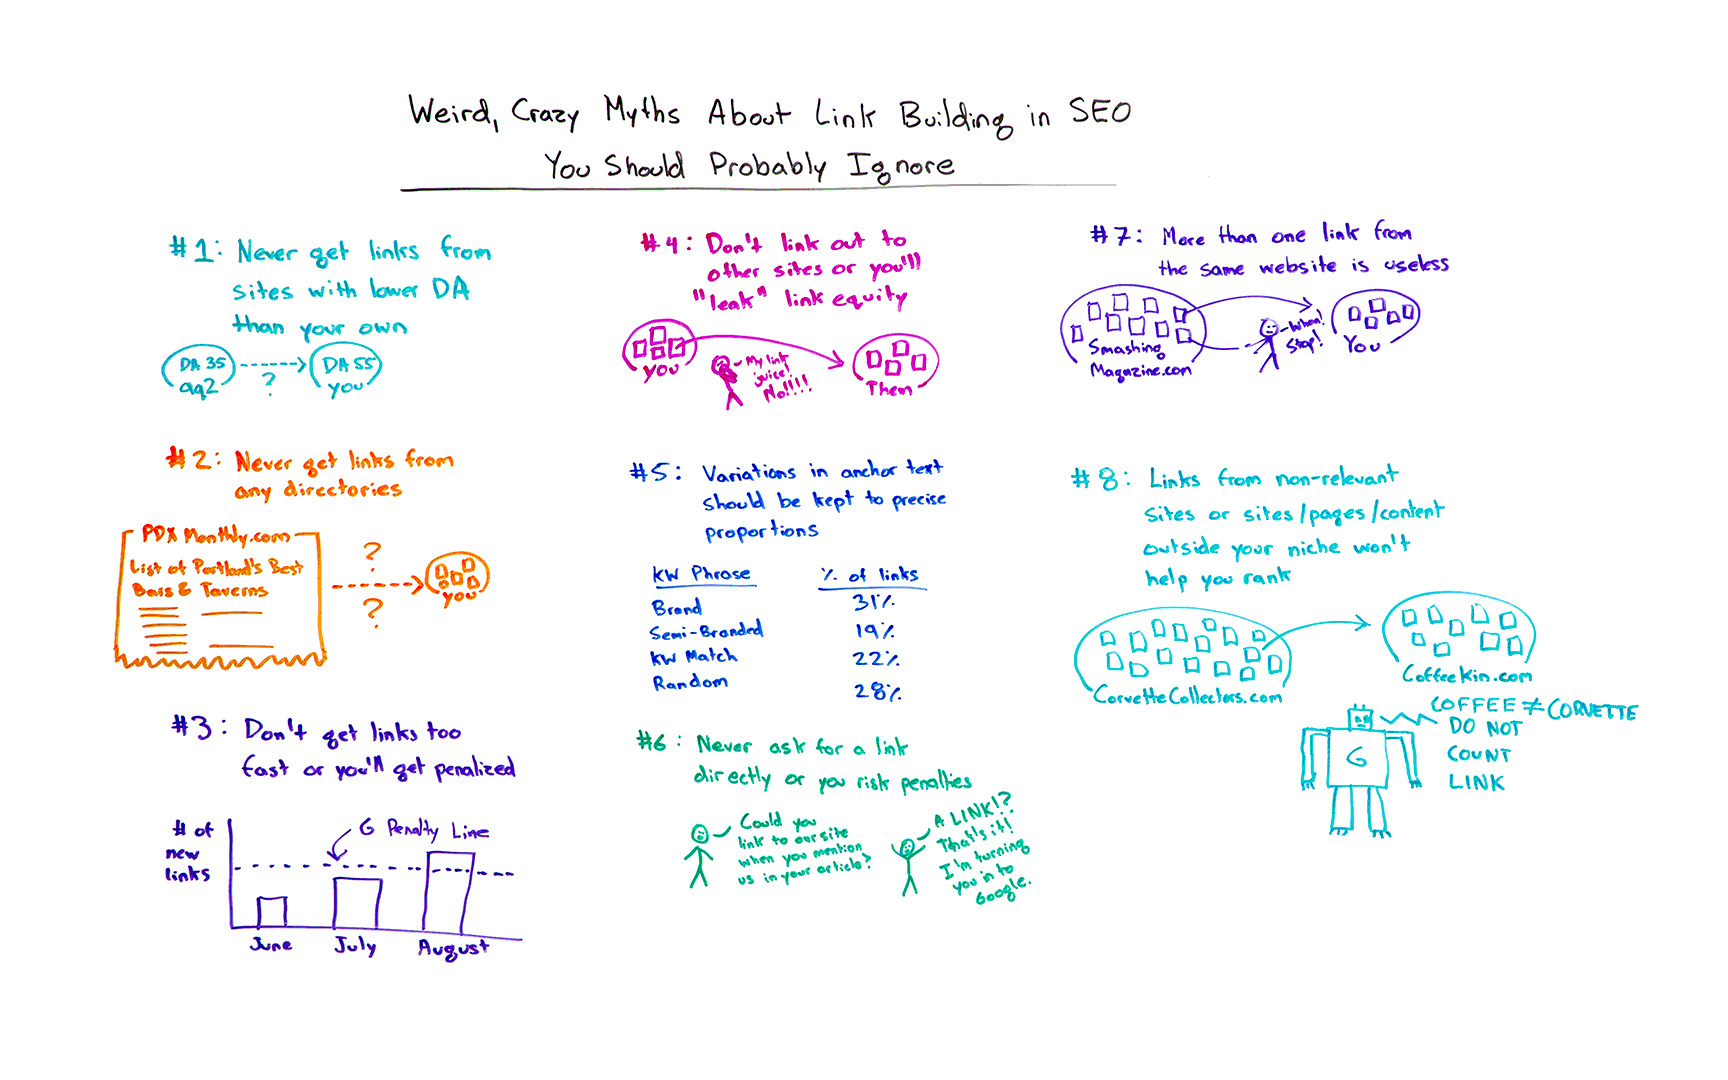 Weird, Crazy Myths About Link Building in SEO
You Should Probably Ignore
#1: Never get links from
sites with lower DA
than your own
DA 35
aq2
?
DA 55
you
#2: Never get links from
any directories
PDX Monthly.com
List of Portland's Best
Bars & Taverns
?
?
you
#3: Don't get links too
fast or you'll get penalized
# of
new
links
G Penalty Line
June
July
August
#4: Don't link out to
other sites or you'll
"leak" link equity
you
My link
juice!
No!!!!
Them
#5: Variations in anchor text
should be kept to precise
proportions
KW Phrase
% of links
Brand
31%
Semi-Branded
19%
KW Match
22%
Random
28%
#6: Never ask for a link
directly or you risk penalties
Could you
link to our site
when you mention
us in your article?
A LINK!?
That's it!
I'm turning
you in to
Google.
#7: More than one link from
the same website is useless
Smashing
Magazine.com
Whoa!
Stop!
You
#8: Links from non-relevant
sites or sites/pages/content
outside your niche won't
help you rank
CorvetteCollectors.com
CoffeeKin.com
G
COFFEE ≠ CORVETTE
DO NOT
COUNT
LINK